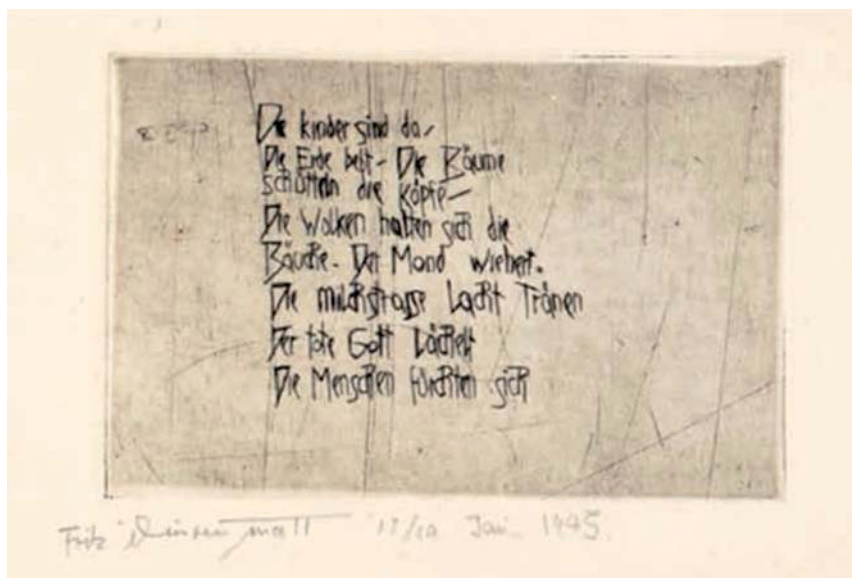 Die kinder sind da -
Die Erde bebt - Die Bäume
schütteln die köpfe -
Die Wolken halten sich die
Bäuche - Der Mond wiehert.
Die milchstrasse Lacht Tränen
Der tote Gott Lächelt
Die Menschen fürchten sich
Fritz Dürrenmatt 1945.